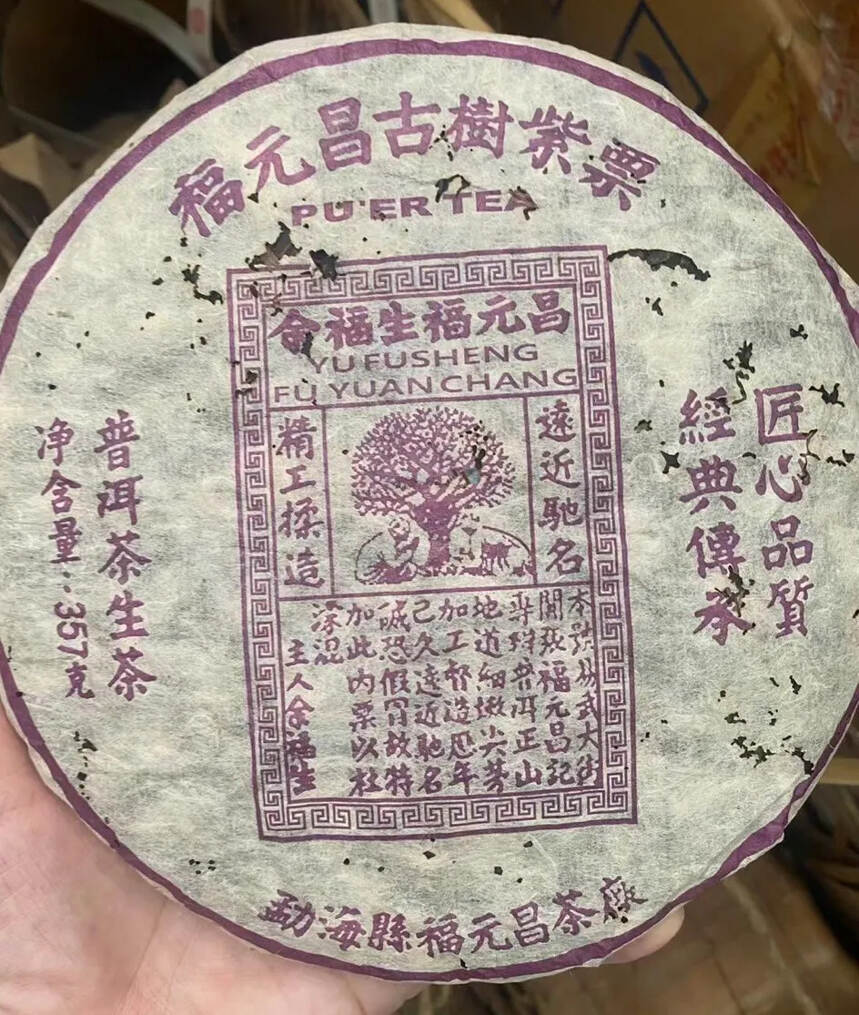 福元昌古樹紫票
PU'ER TEA
余福生福元昌
YU FUSHENG
FU YUAN CHANG
遠近馳名
精工揉造
本號易武大街
開張福元昌記
專辦普洱正山
地道細嫩尖芽
加工督造厯年
己久遠近馳名
誠恐假冒故特
加此内票以杜
混
主人余福生
匠心品質
經典傳承
普洱茶生茶
净含量：357克
勐海縣福元昌茶廠